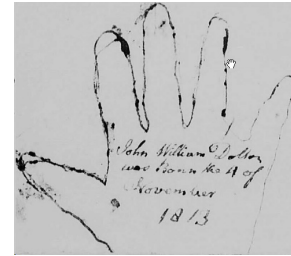 John William Dolton
was Born the 4 of
November
1813